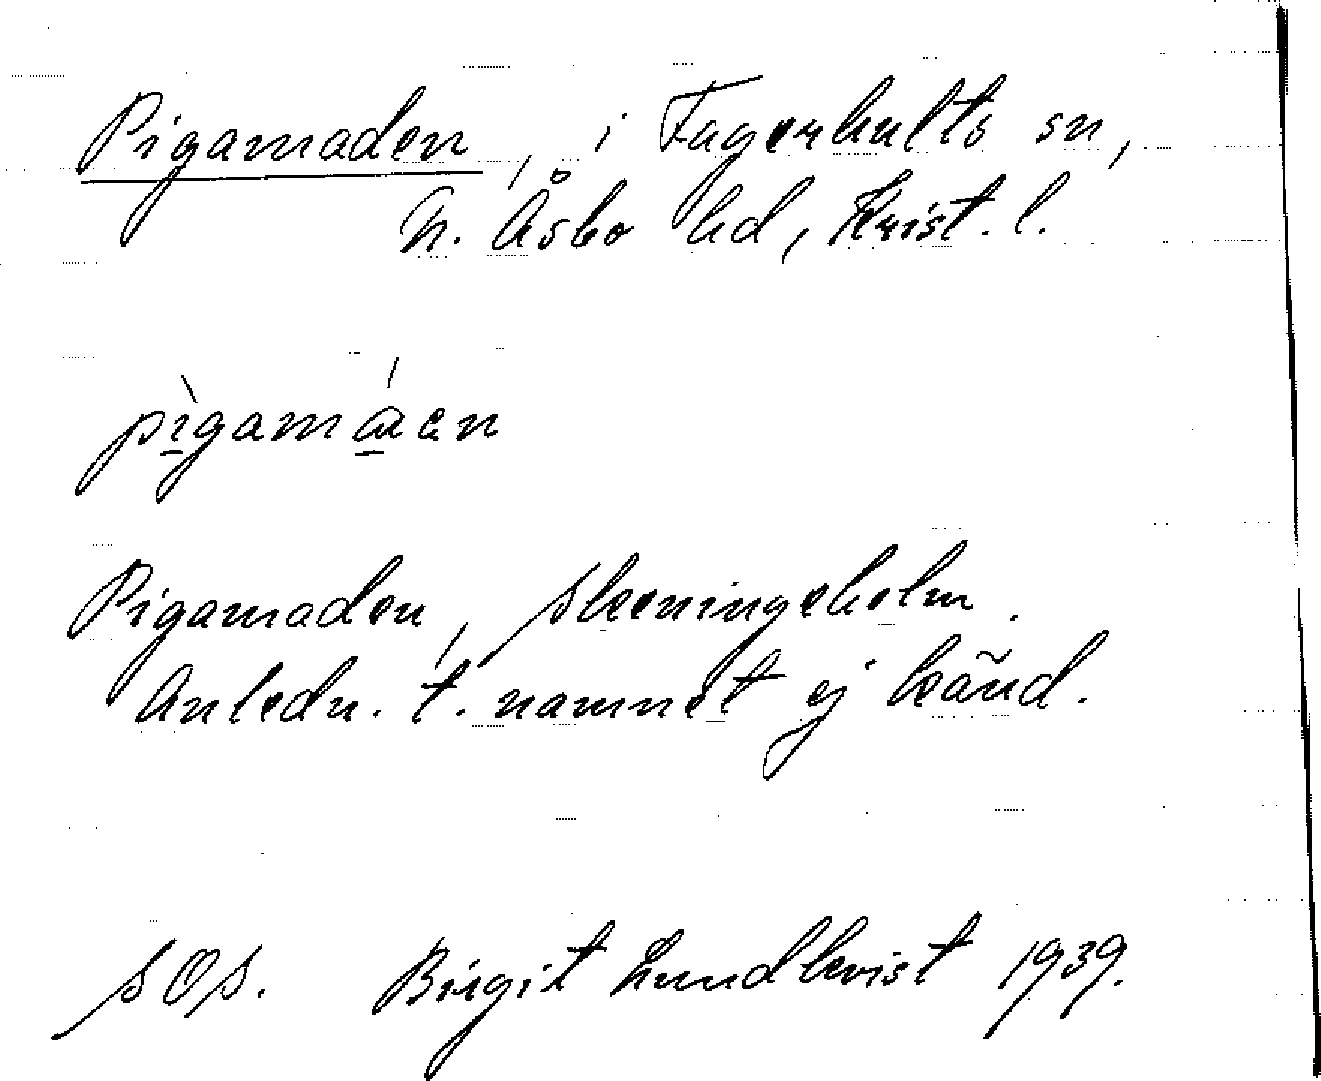 Pigamaden, i Fagerhults sn,
N. Åsbo hd, Krist. l.
pìgamáen
Pigamaden, Skeningeholm.
Anledn. t. namnet ej känd.
SOS. Birgit Lundkvist 1939.